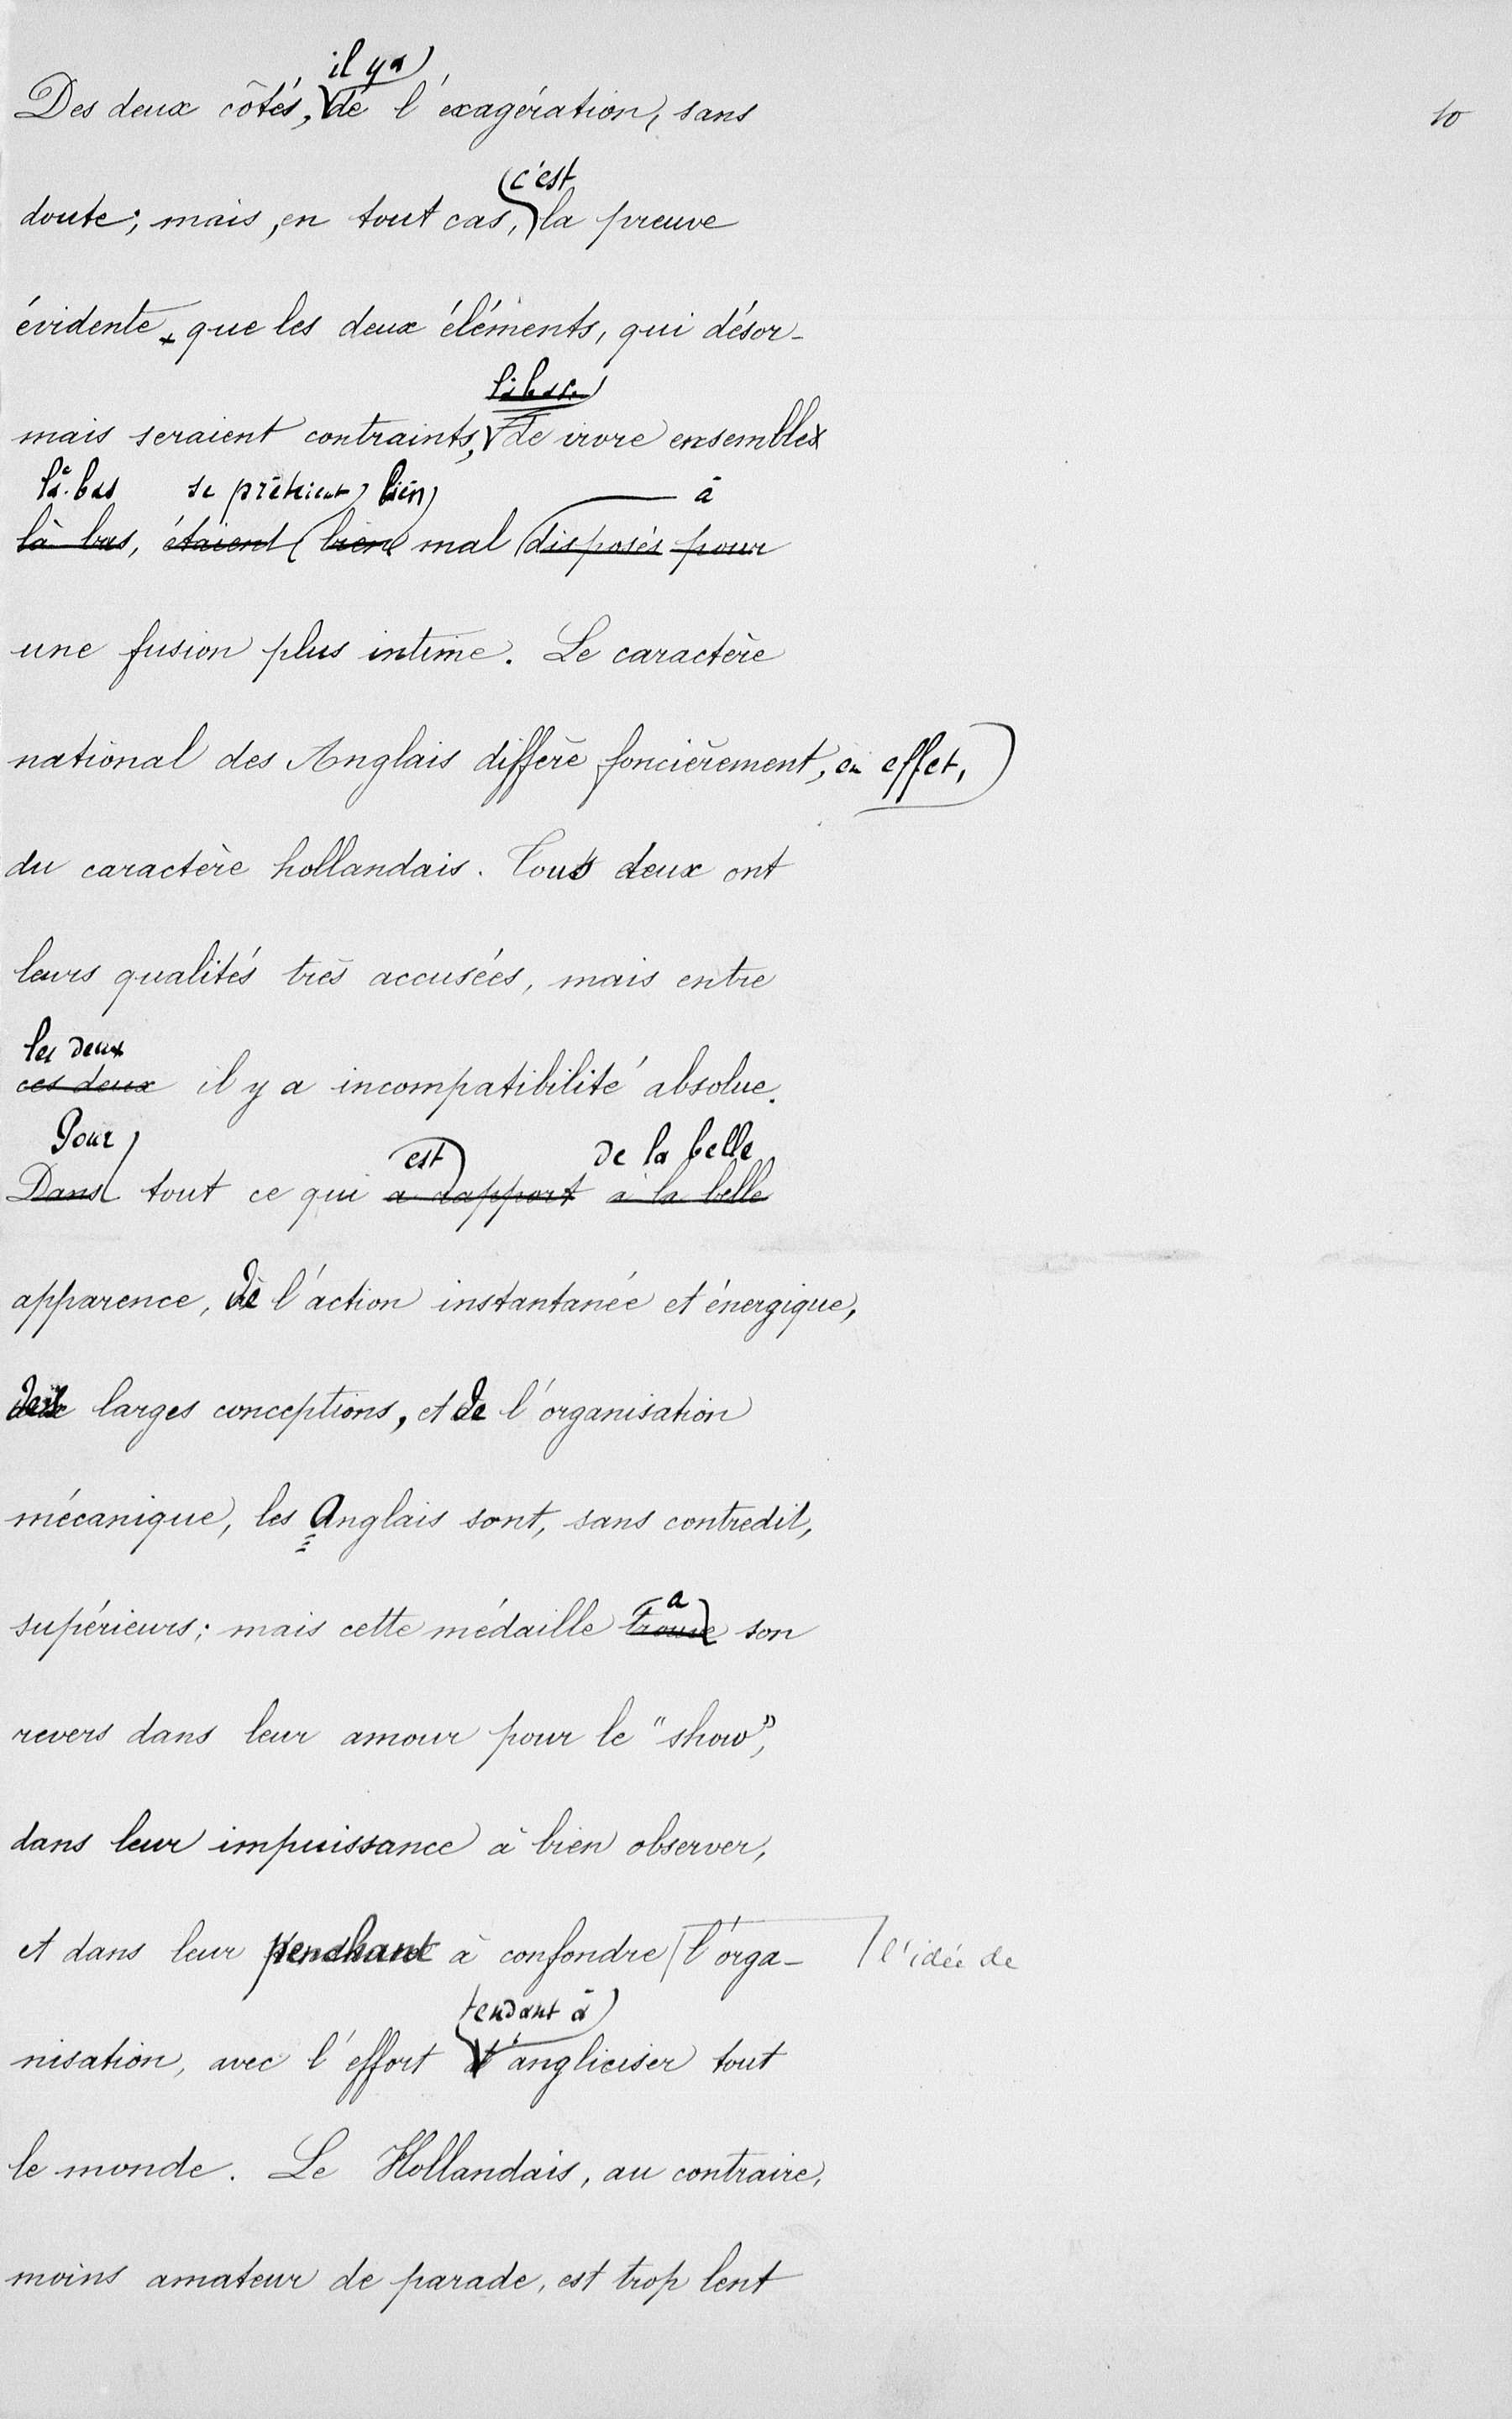 10
il y a
Des deux côtés, de l'exagération, sans
c'est
doute; mais, en tout cas, la preuve
évidente que les deux éléments, qui désor-
là-bas
mais seraient contraints, de vivre ensemble
là-bas se prêtaient bien à
là bas, étaient bien mal disposés pour
une fusion plus intime. Le caractère
national des Anglais diffère foncièrement, en effet,
du caractère hollandais. Tous deux ont
leurs qualités très accusées, mais entre
les deux
ces deux il y a incompatibilité absolue.
Pour est de la belle
Dans tout ce qui a rapport à la belle
apparence, de l'action instantanée et énergique,
larges conceptions, et de l'organisation
mécanique, les Anglais sont, sans contredit,
a
supérieurs; mais cette médaille trouve son
revers dans leur amour pour le "show",
dans leur impuissance à bien observer,
et dans leur penchant à confondre l'orga- l'idée de
tendant à
nisation, avec l'effort d'angliciser tout
le monde. Le Hollandais, au contraire,
moins amateur de parade, est trop lent